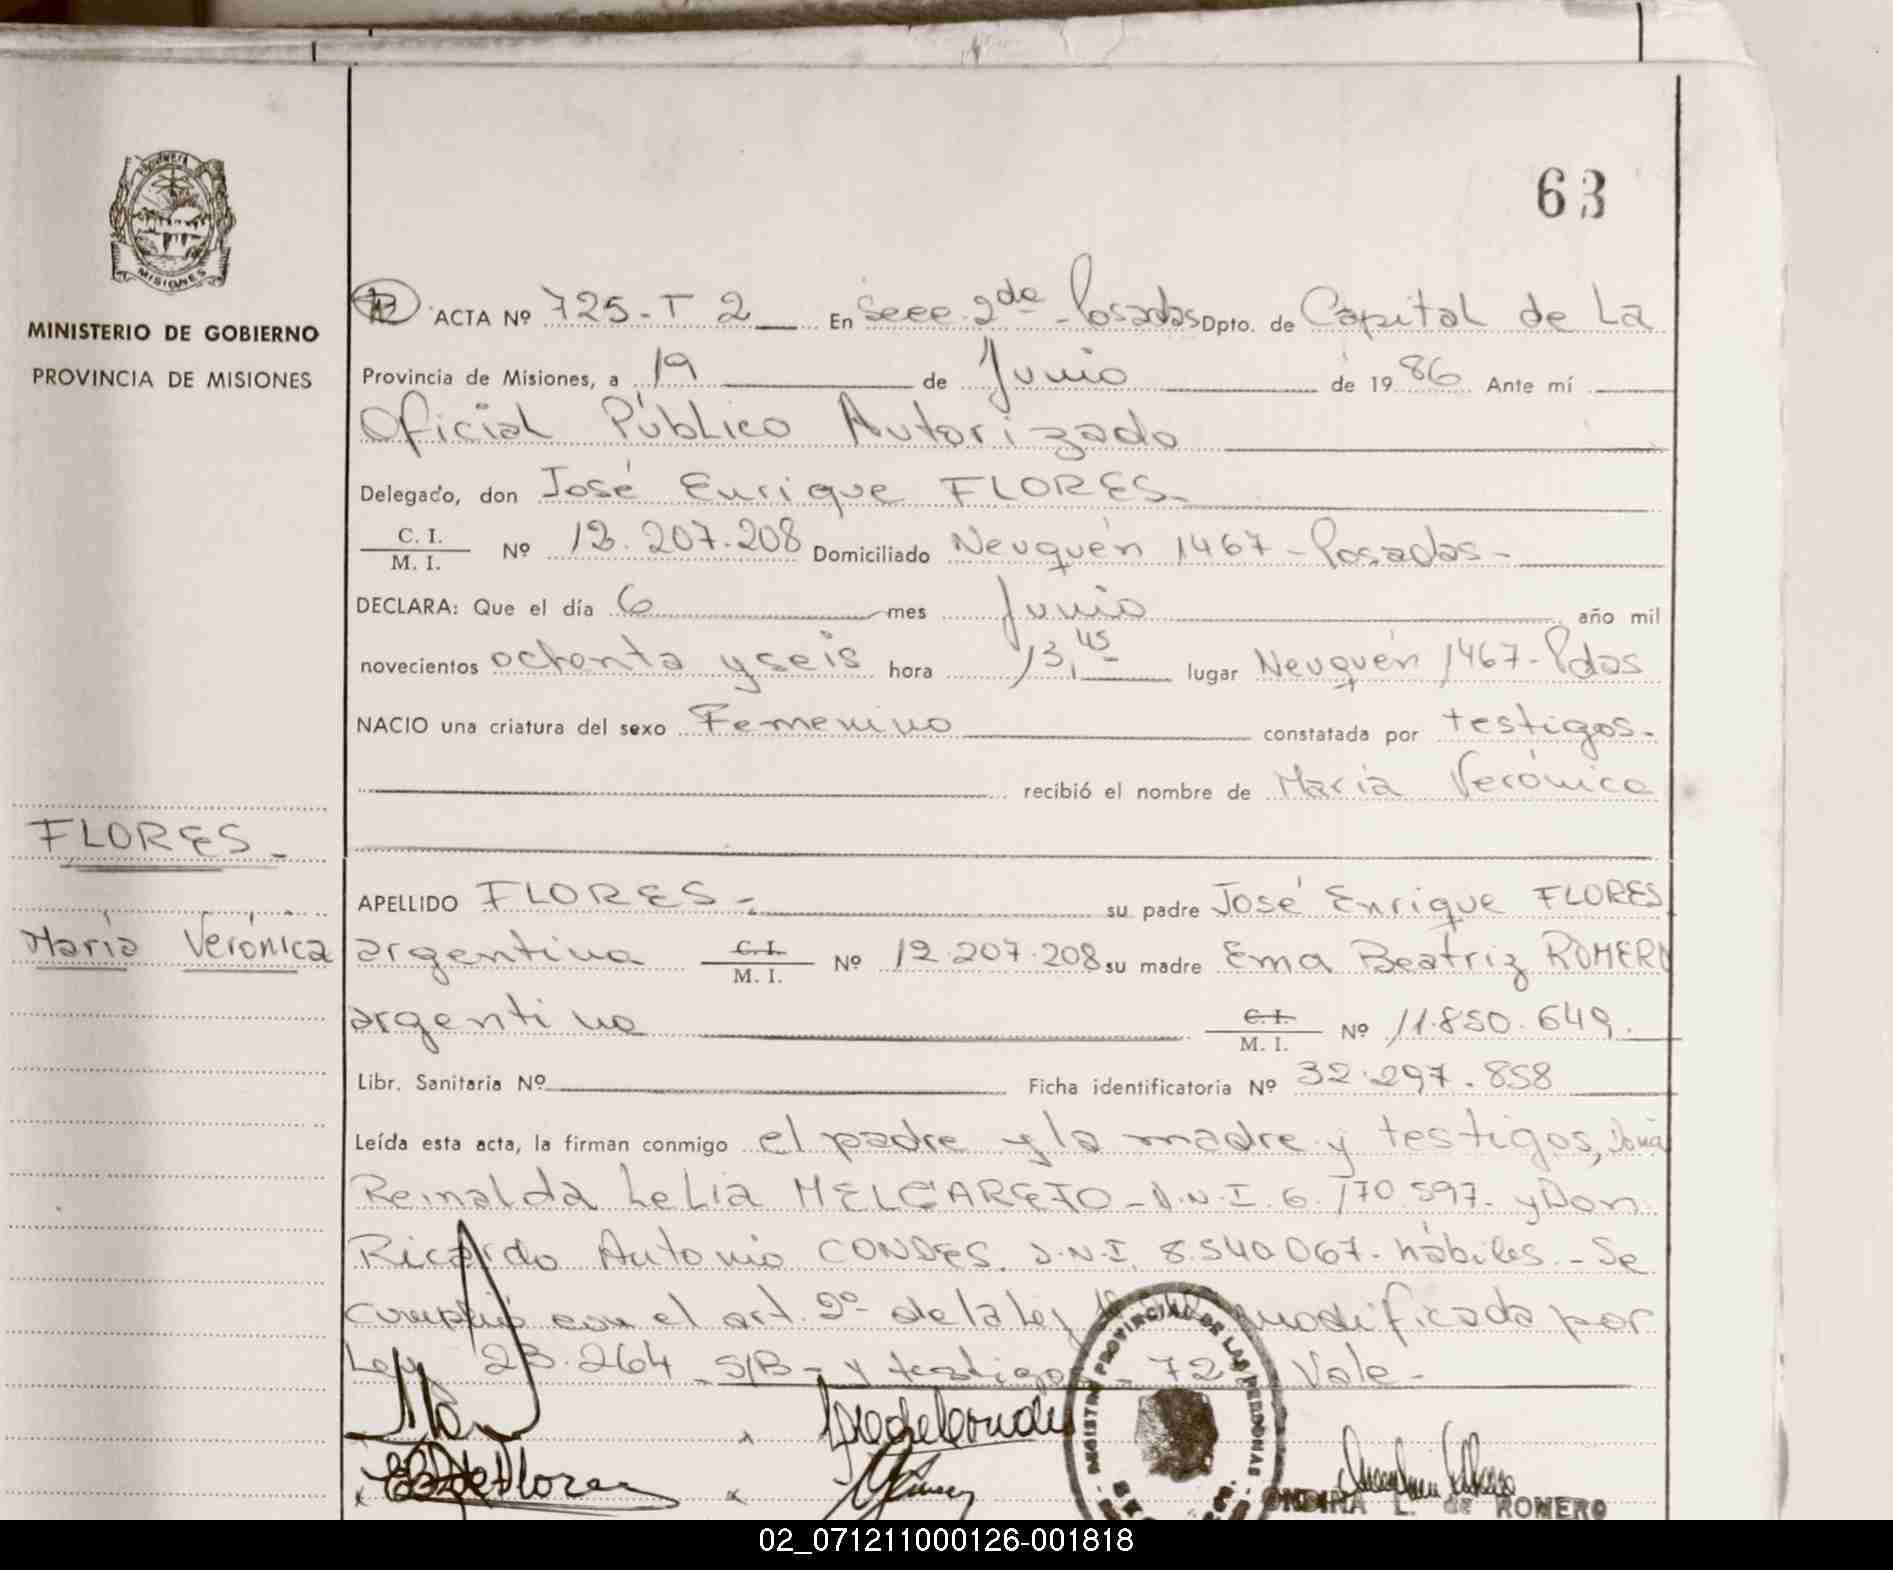 63
MISIONES
MINISTERIO DE GOBIERNO
PROVINCIA DE MISIONES
ACTA Nº 725-T 2 En Secc. 2da Posadas Dpto. de Capital de La
Provincia de Misiones, a 19 de Junio de 1986 Ante mí
Oficial Público Autorizado
Delegado, don José Enrique FLORES-
C. I. M. I. Nº 12.207.208 Domiciliado Neuquén 1467-Posadas-
DECLARA: Que el día 6 mes Junio año mil
novecientos octenta y seis hora 13,45 lugar Neuquén 1467-Pdas
NACIO una criatura del sexo Femenino constatada por testigos-
recibió el nombre de María Verónica
FLORES-
María Verónica
APELLIDO FLORES- su padre José Enrique FLORES
argentino C. I. M. I. Nº 12.207.208 su madre Ema Beatriz ROMERO
argentina C. I. M. I. Nº 11.850.649.
Libr. Sanitaria Nº Ficha identificatoria Nº 32.297.858
Leída esta acta, la firman conmigo el padre y la madre y testigos, Doña
Reinalda Lelia MELGAREJO-D.N.I. 6.170.597- y Don
Ricardo Antonio CONDES. D.N.I. 8.540.067- hábiles.- Se
cumplió con el art. 2º de la ley modificada por
Ley 23.264- S/B- y testigo - 72 Vale-
REGISTRO PROVINCIAL DE LAS PERSONAS
E B de Flores
ONDINA L. de ROMERO
02_071211000126-001818